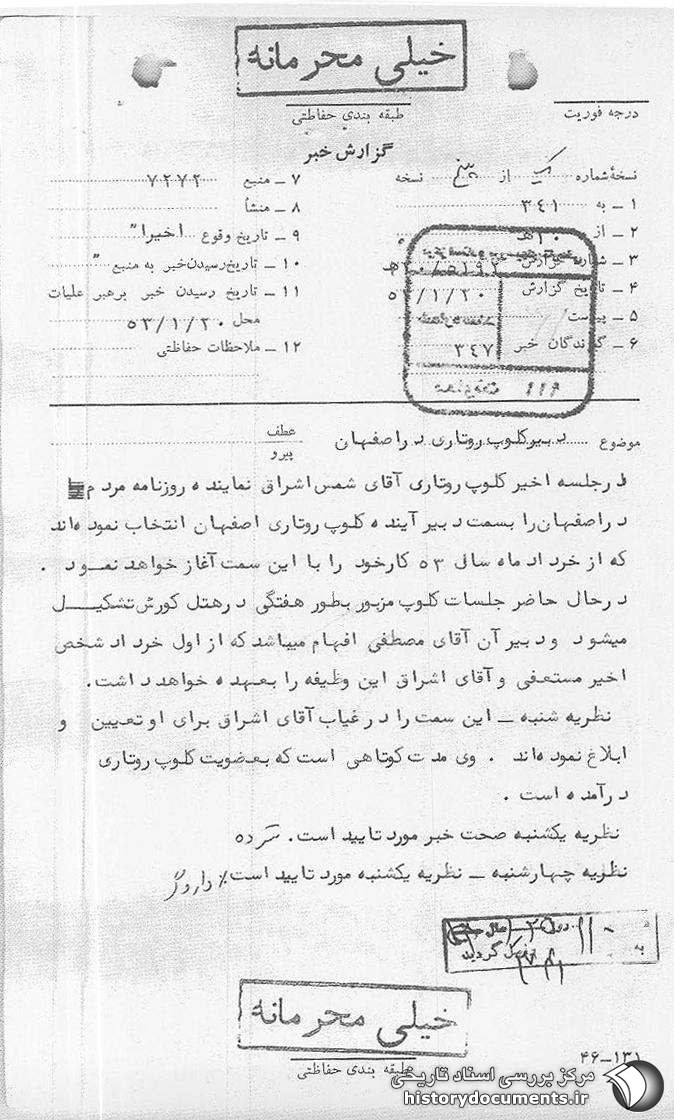 خیلی محرمانه
طبقه بندی حفاظتی
درجه فوریت
گزارش خبر
نسخهٔ شماره یک از پنج نسخه
۱ ـ به ۳۴۱
۲ ـ از ۲۰ هـ
۳ ـ شماره گزارش
۴ ـ تاریخ گزارش ۵۳/۱/۲۰
۵ ـ پیوست
۶ ـ گیرندگان خبر ۳۴۷
۷ ـ منبع ۷۲۷۲
۸ ـ منشأ
۹ ـ تاریخ وقوع اخیرا"
۱۰ ـ تاریخ رسیدن خبر به منبع "
۱۱ ـ تاریخ رسیدن خبر برهبر عملیات
محل ۵۳/۱/۲۰
۱۲ ـ ملاحظات حفاظتی
موضوع دبیر کلوپ روتاری در اصفهان
عطف
پیرو
در جلسه اخیر کلوپ روتاری آقای شمس اشراق نماینده روزنامه مردم
در اصفهان را بسمت دبیر آینده کلوپ روتاری اصفهان انتخاب نموده‌اند
که از خرداد ماه سال ۵۳ کار خود را با این سمت آغاز خواهد نمود .
در حال حاضر جلسات کلوپ مزبور بطور هفتگی در هتل کورش تشکیل
میشود و دبیر آن آقای مصطفی افهام میباشد که از اول خرداد شخص
اخیر مستعفی و آقای اشراق این وظیفه را بعهده خواهد داشت.
نظریه شنبه ـ این سمت را در غیاب آقای اشراق برای او تعیین و
ابلاغ نموده‌اند . وی مدت کوتاهی است که بعضویت کلوپ روتاری
درآمده است .
نظریه یکشنبه صحت خبر مورد تایید است.
نظریه چهارشنبه ـ نظریه یکشنبه مورد تایید است٪
خیلی محرمانه
طبقه بندی حفاظتی
۴۶-۱۳۱
مرکز بررسی اسناد تاریخی
historydocuments.ir